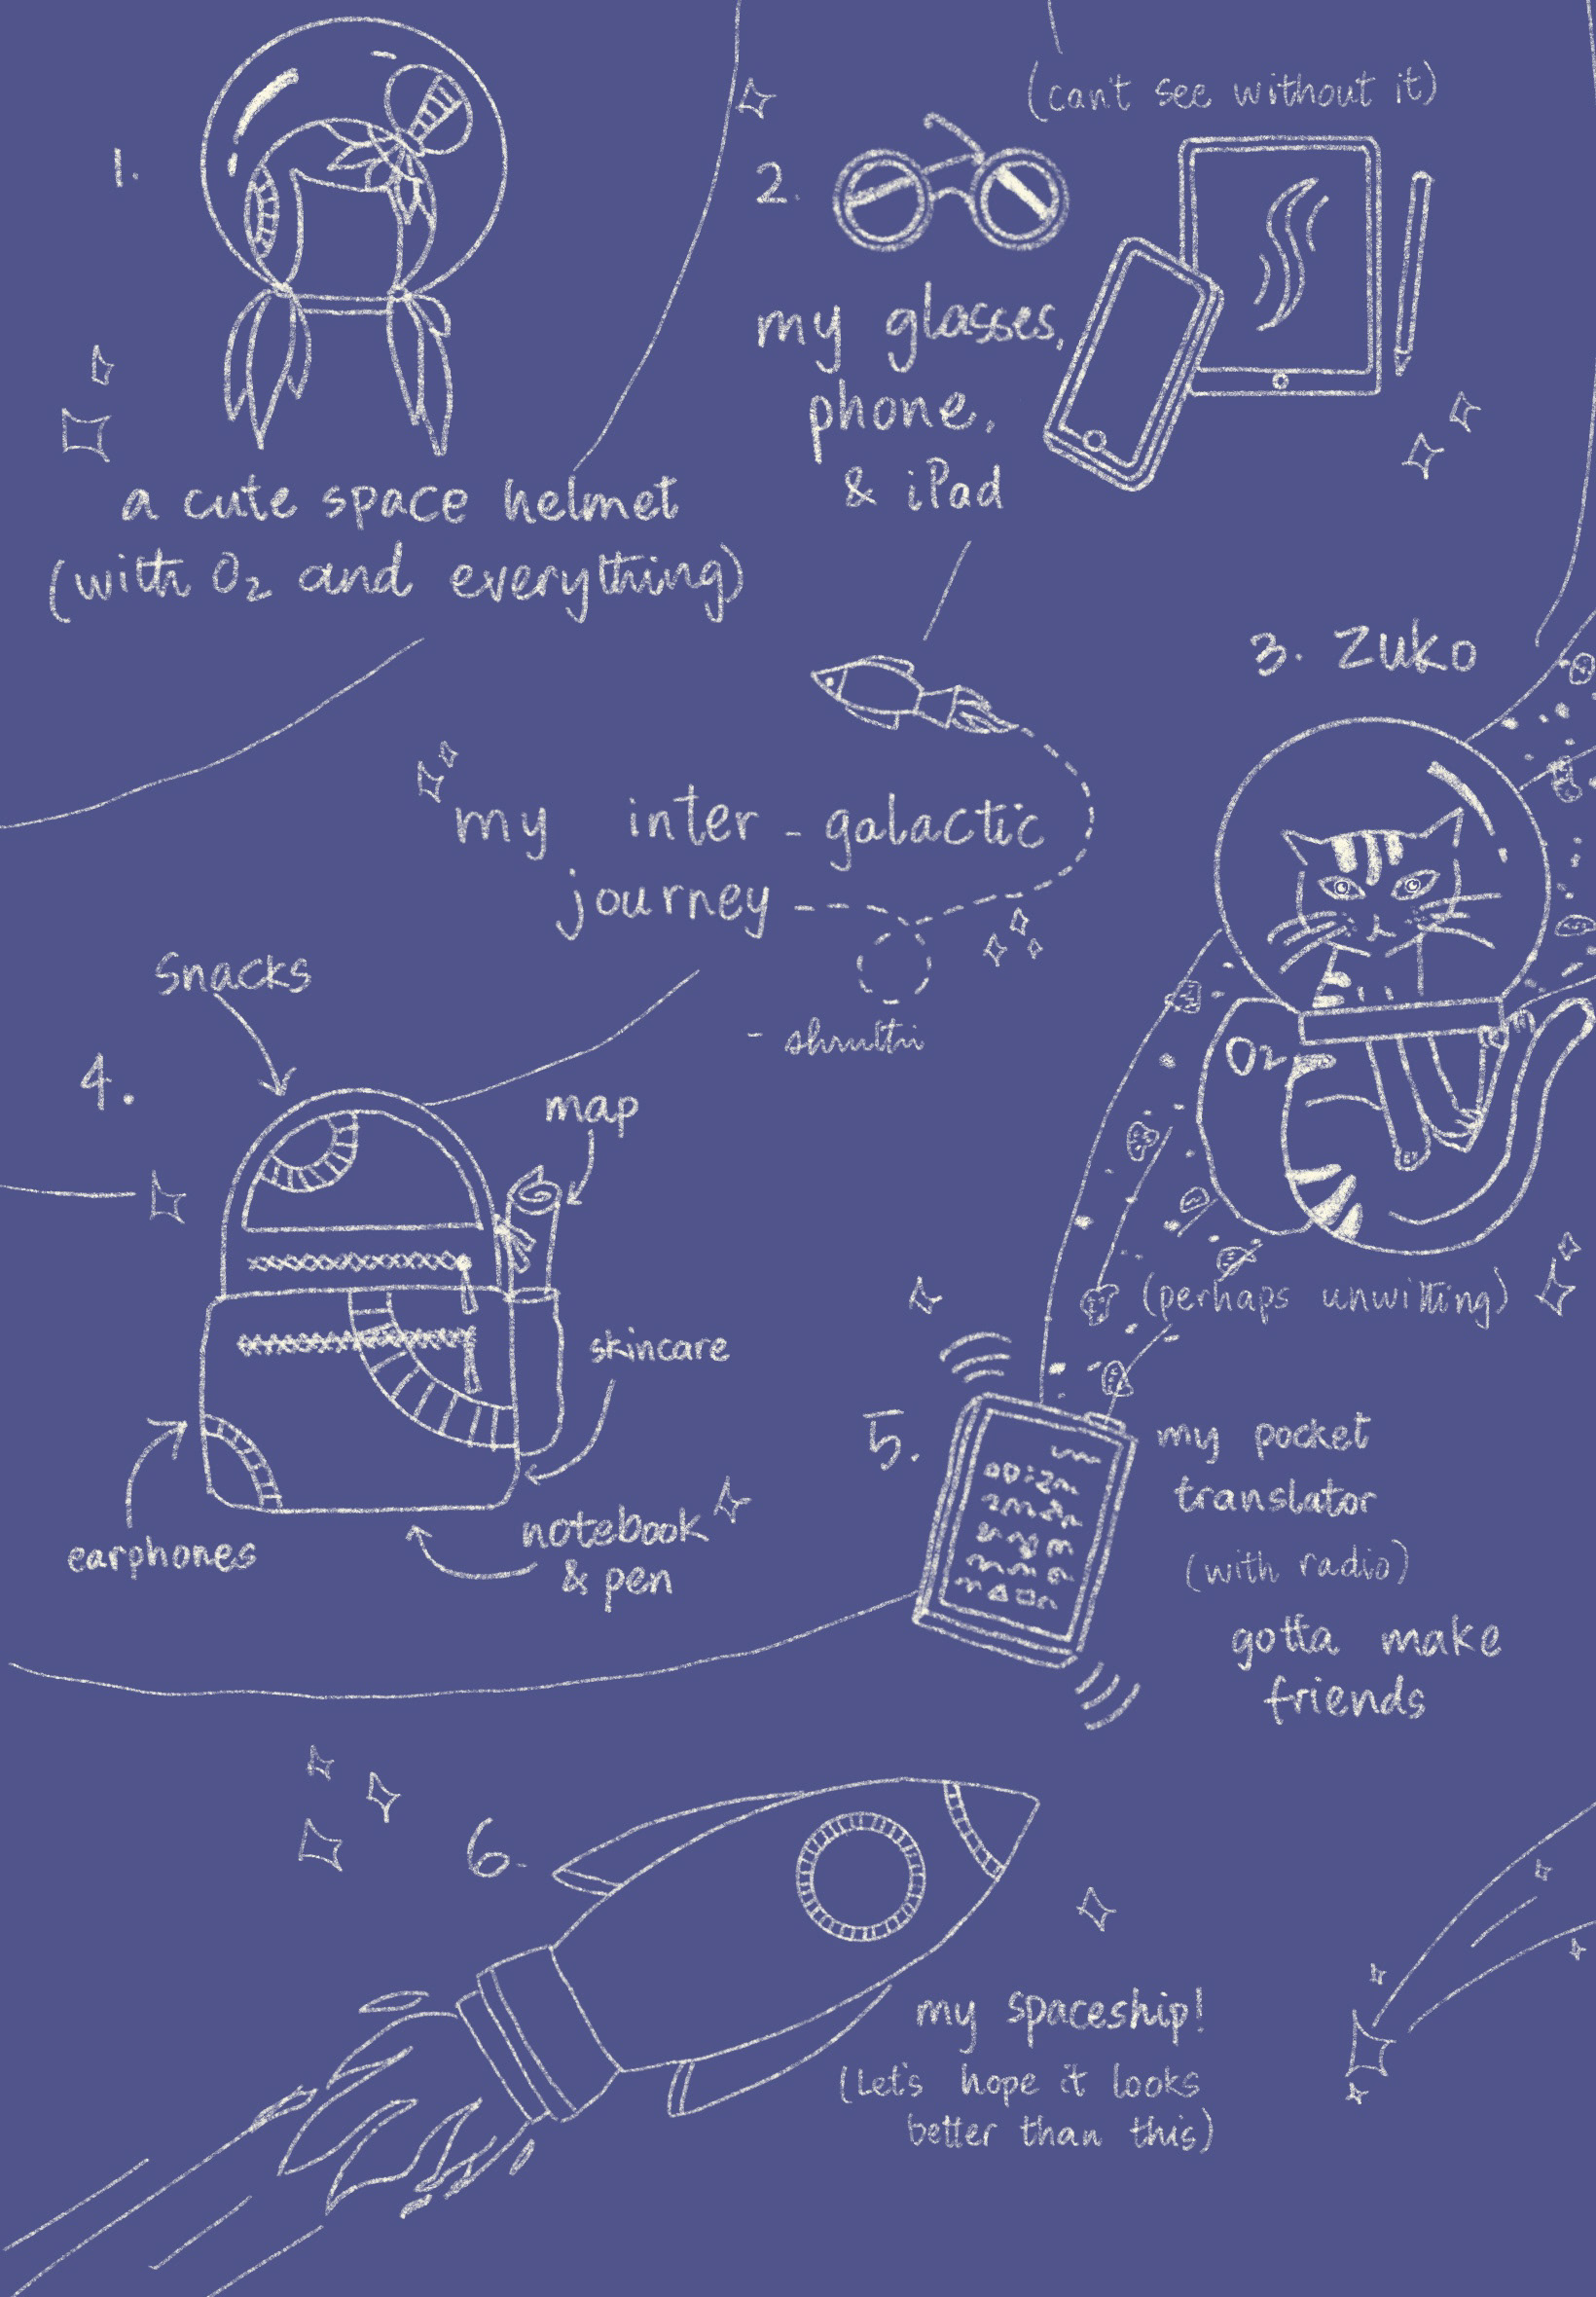 1.
a cute space helmet
(with O₂ and everything)
(can't see without it)
2.
my glasses,
phone,
& iPad
3. Zuko
O₂
(perhaps unwilling)
my inter-galactic
journey
- shruthi
4.
Snacks
map
skincare
earphones
notebook
& pen
5.
my pocket
translator
(with radio)
gotta make
friends
6.
my spaceship!
(Let's hope it looks
better than this)